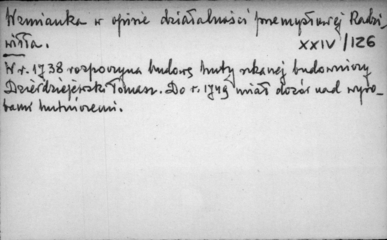 Wzmianka w opisie działalności przemysłowej Radzi-
wiłła.
XXIV/126
W r. 1738 rozpoczyna budowę huty szklanej budowniczy
Dzierdziejewski Tomasz. Do r. 1749 miał dozór nad wyro-
bami hutniczemi.